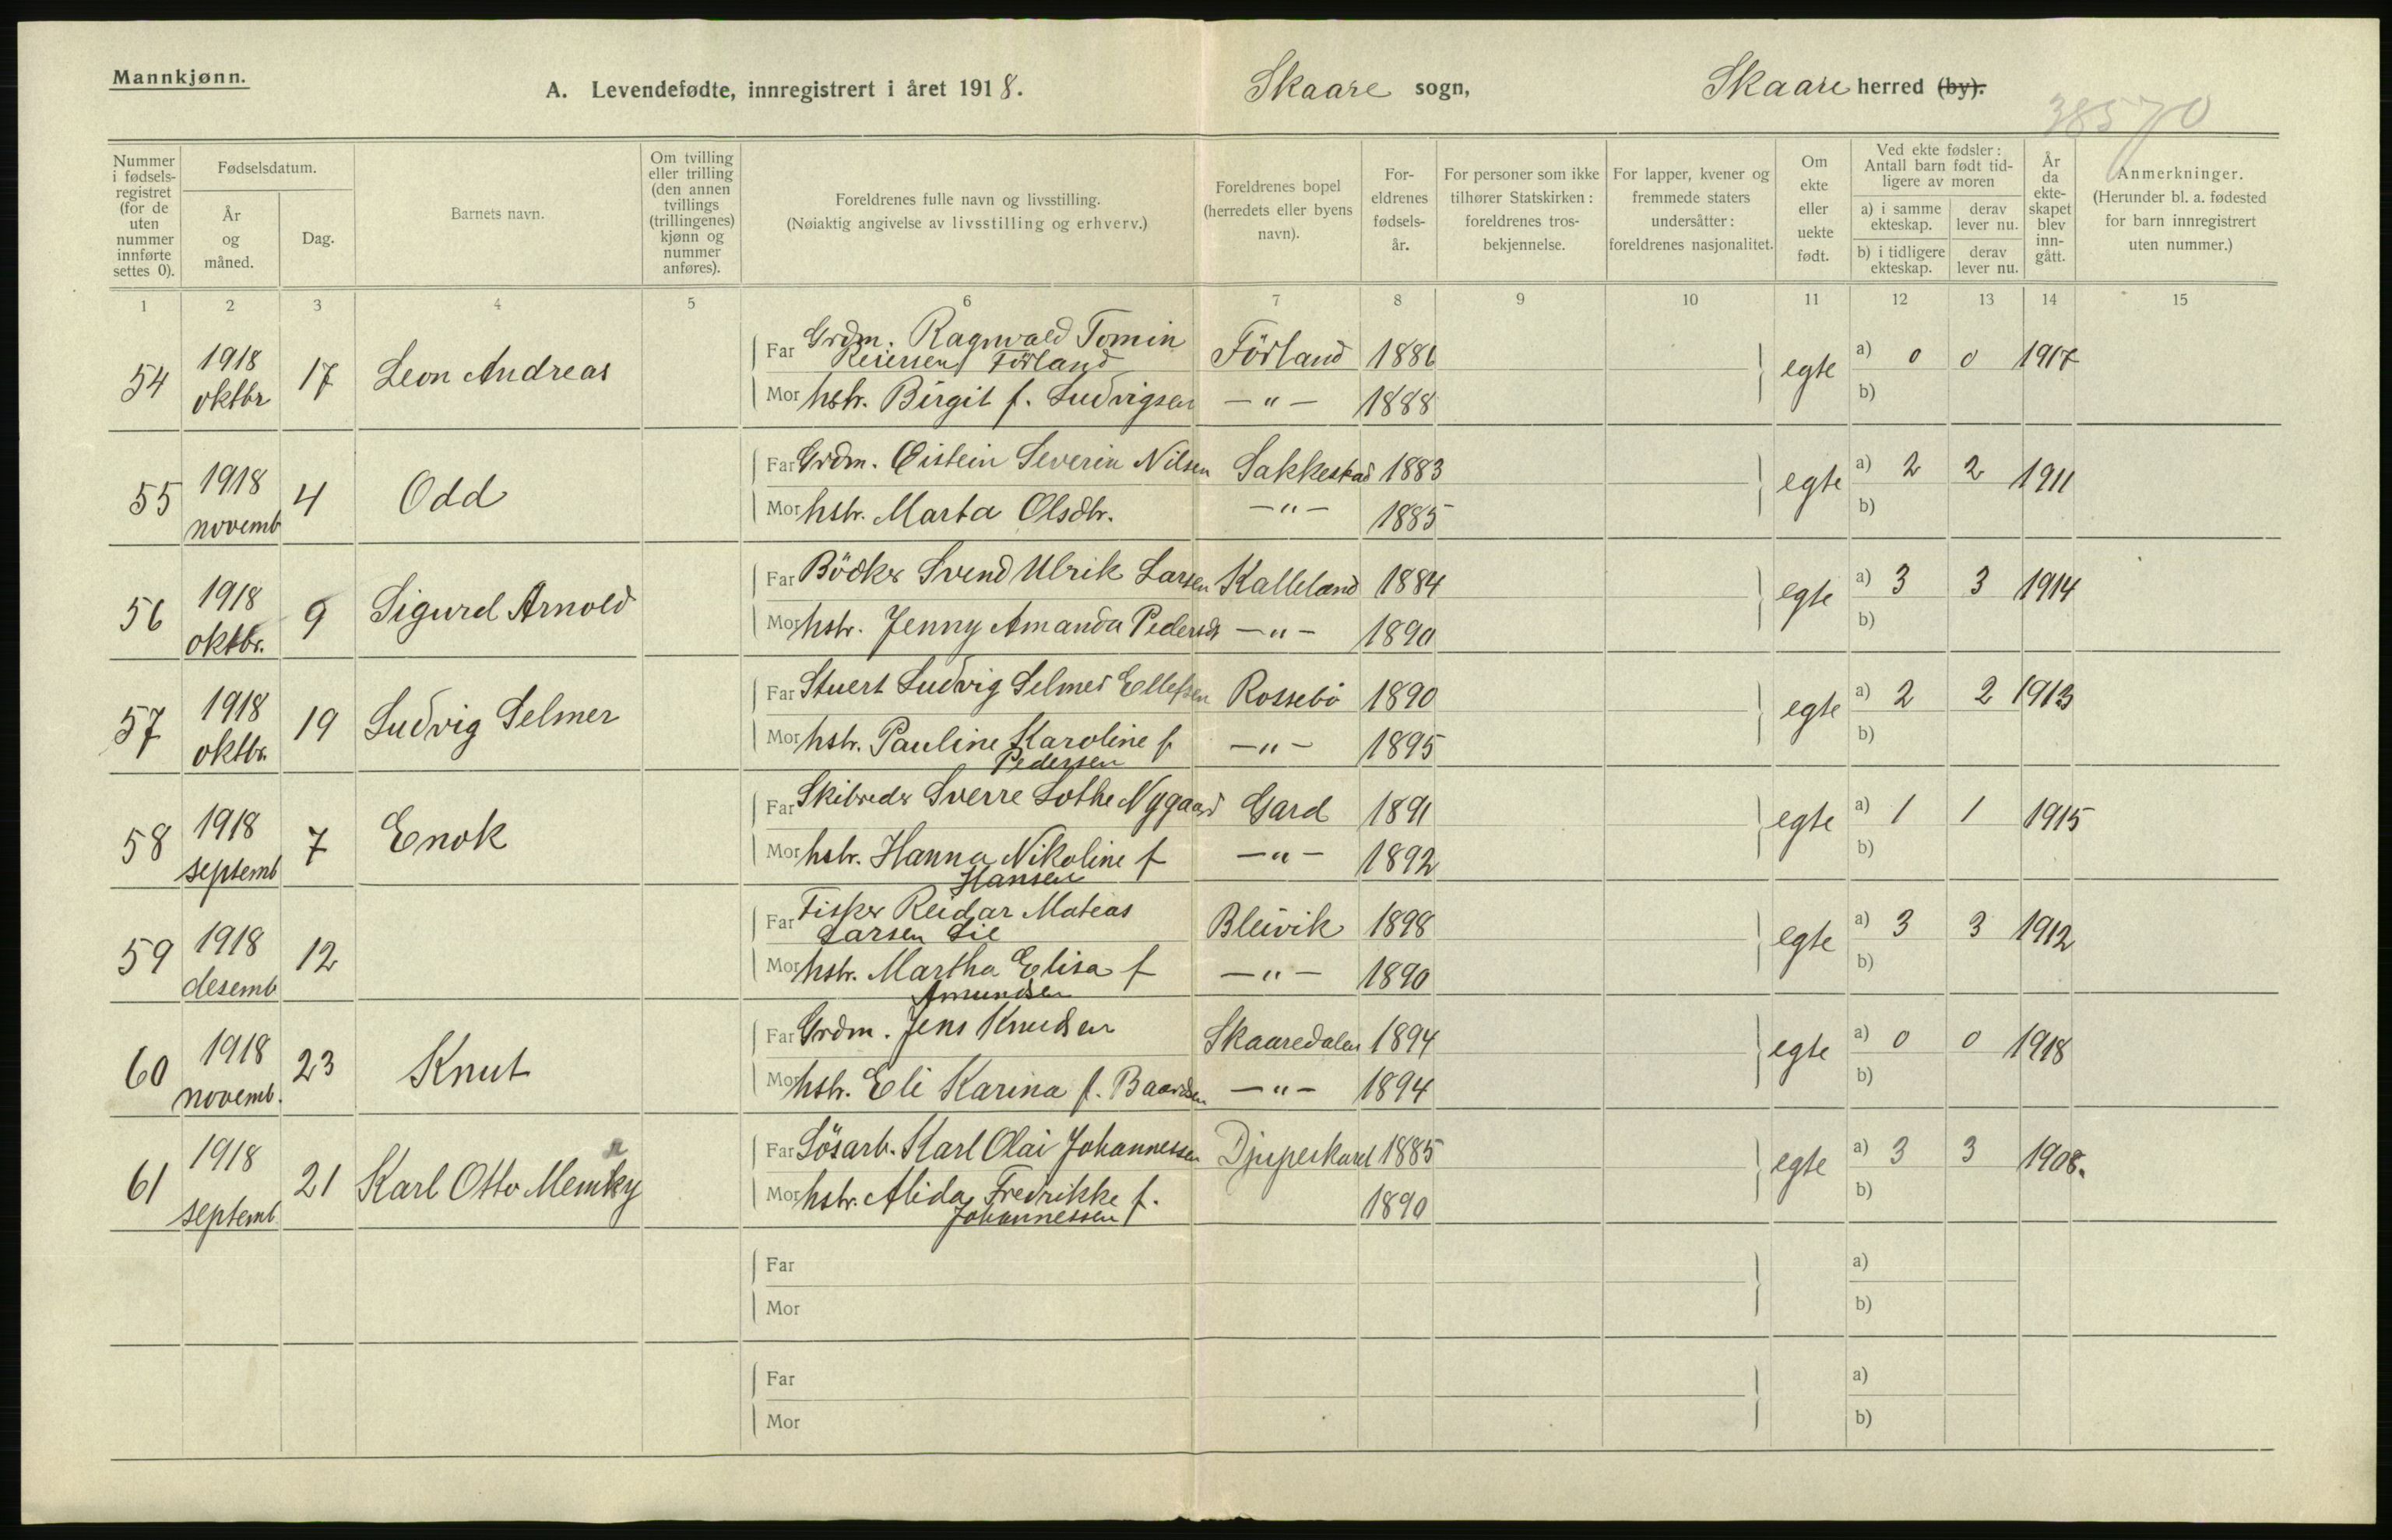 Mannkjønn.
A. Levendefødte, innregistrert i året 1918.
Skaare sogn,
Skaare herred (by).
38570
Nummer i fødselsregistret (for de uten nummer innførte settes 0).
Fødselsdatum.
År og måned.
Dag.
Barnets navn.
Om tvilling eller trilling (den annen tvillings (trillingenes) kjønn og nummer anføres).
Foreldrenes fulle navn og livsstilling.
(Nøiaktig angivelse av livsstilling og erhverv.)
Foreldrenes bopel (herredets eller byens navn).
Foreldrenes fødselsår.
For personer som ikke tilhører Statskirken: foreldrenes trosbekjennelse.
For lapper, kvener og fremmede staters undersåtter: foreldrenes nasjonalitet.
Om ekte eller uekte født.
Ved ekte fødsler: Antall barn født tidligere av moren
a) i samme ekteskap.
derav lever nu.
b) i tidligere ekteskap.
derav lever nu.
År da ekteskapet blev inngått.
Anmerkninger.
(Herunder bl. a. fødested for barn innregistrert uten nummer.)
1 2 3 4 5 6 7 8 9 10 11 12 13 14 15
54 1918 oktbr 17 Leon Andreas
Far Grdm. Ragnvald Tomin Reiersen Förland Förland 1886 egte a) 0 0 1917
Mor hstr. Birgit f. Ludvigsen — " — 1888 b)
55 1918 novemb 4 Odd
Far Grdm. Øistein Severin Nilsen Sakkestad 1883 egte a) 2 2 1911
Mor hstr. Marta Olsdtr. — " — 1885 b)
56 1918 oktbr. 9 Sigurd Arnold
Far Bödker Svend Ulrik Larsen Kalleland 1884 egte a) 3 3 1914
Mor hstr. Jenny Amanda Pedersdt — " — 1890 b)
57 1918 oktbr. 19 Ludvig Selmer
Far Stuert Ludvig Selmer Ellefsen Rossebö 1890 egte a) 2 2 1913
Mor hstr. Pauline Karoline f Pedersen — " — 1895 b)
58 1918 septemb 7 Enok
Far Skibreder Sverre Lothe Nygaard Gard 1891 egte a) 1 1 1915
Mor hstr. Hanna Nikoline f Hansen — " — 1892 b)
59 1918 desemb 12
Far Fisker Reidar Mateas Larsen Lie Bleivik 1898 egte a) 3 3 1912
Mor hstr. Martha Elisa f Amundsen — " — 1890 b)
60 1918 novemb. 23 Knut
Far Grdm. Jens Knudsen Skaaredalen 1894 egte a) 0 0 1918
Mor hstr. Eli Karina f. Baardsen — " — 1894 b)
61 1918 septemb 21 Karl Otto
Far Lösarb. Karl Olai Johannessen Djupeskard 1885 egte a) 3 3 1908.
Mor hstr. Alida Fredrikke f. Johannessen 1890 b)
Far a)
Mor b)
Far a)
Mor b)